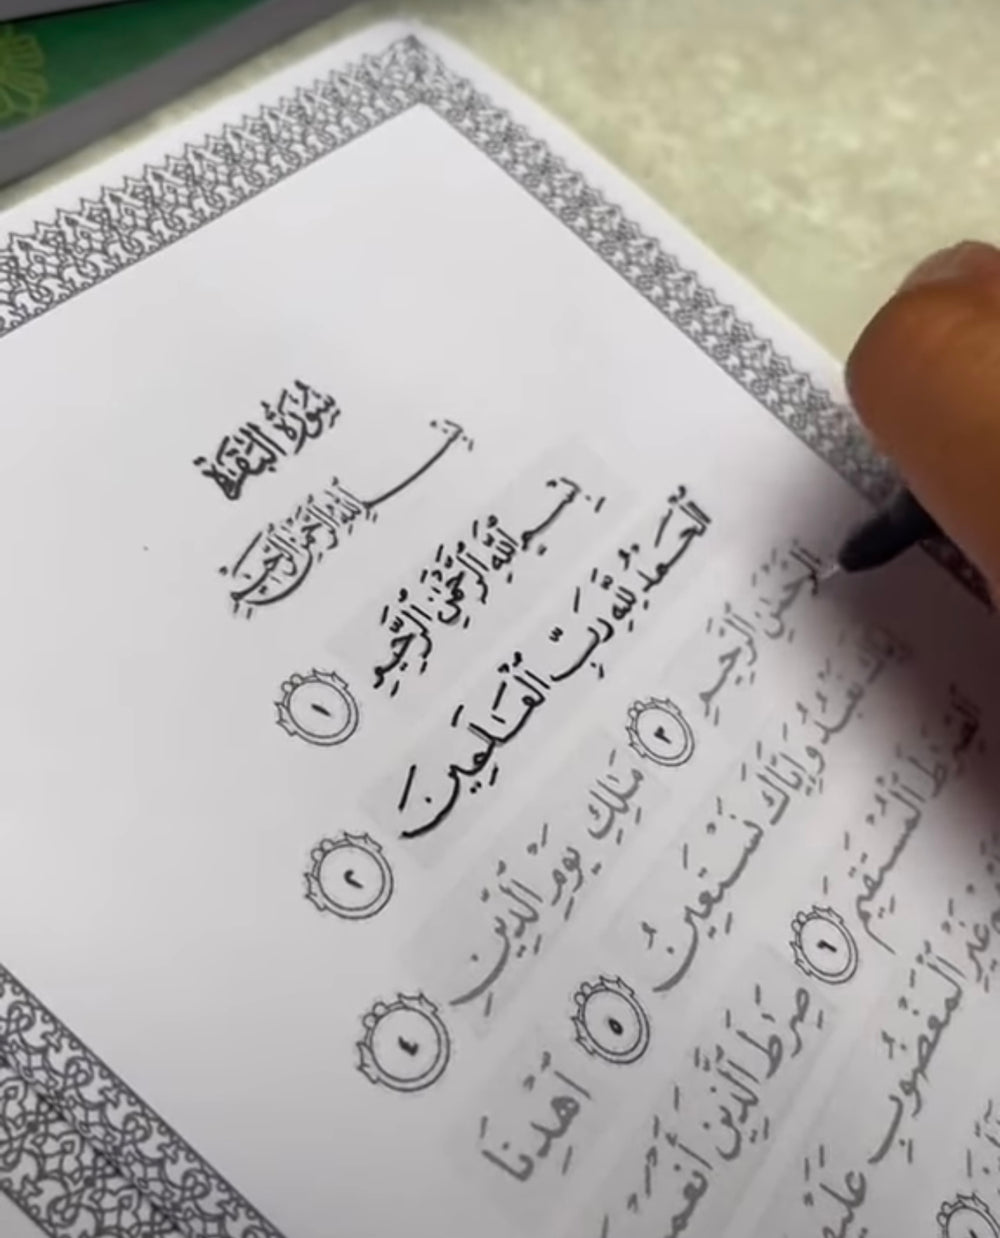 سُورَةُ البَقَرَة
بِسْمِ اللَّهِ الرَّحْمَٰنِ الرَّحِيمِ
بِسْمِ ٱللَّهِ ٱلرَّحْمَٰنِ ٱلرَّحِيمِ ١
ٱلْحَمْدُ لِلَّهِ رَبِّ ٱلْعَٰلَمِينَ ٢
ٱلرَّحْمَٰنِ ٱلرَّحِيمِ ٣ مَٰلِكِ يَوْمِ ٱلدِّينِ ٤
إِيَّاكَ نَعْبُدُ وَإِيَّاكَ نَسْتَعِينُ ٥ ٱهْدِنَا
ٱلصِّرَٰطَ ٱلْمُسْتَقِيمَ ٦ صِرَٰطَ ٱلَّذِينَ أَنْعَمْ
غَيْرِ ٱلْمَغْضُوبِ عَلَيْهِ